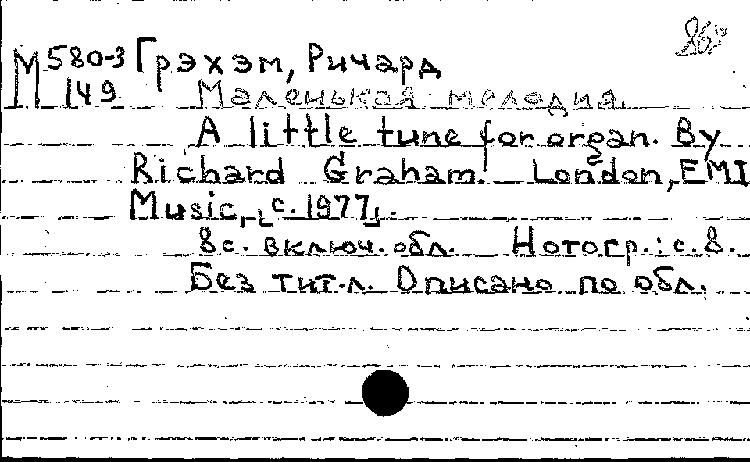 М580-3 Грэхэм, Ричард
149 Маленькая мелодия.
A little tune for organ. By
Richard Graham. London, EMI
Music, [c. 1977].
8с. включ. обл. Нотогр.: с. 8.
Без тит. л. Описано по обл.